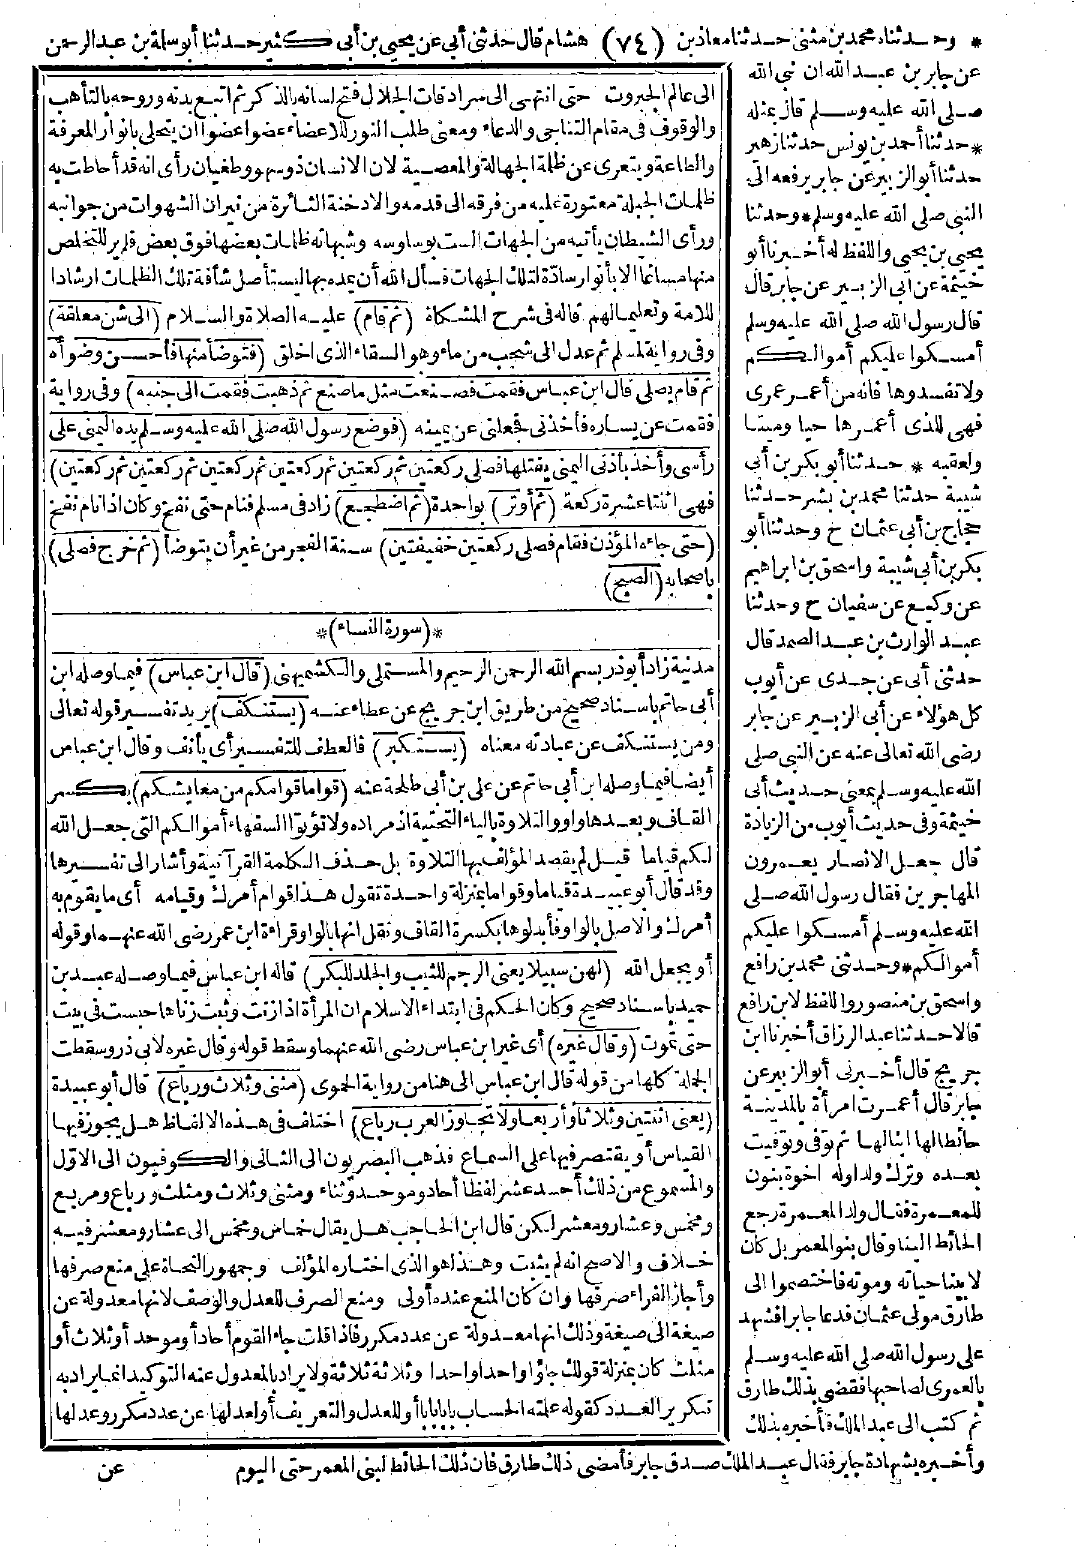 * وحدثناه محمد بن مثنى حدثنا معاذ بن (٧٤) هشام قال حدثني أبي عن يحيى بن أبي كثير حدثنا أبو سلمة بن عبد الرحمن
عن جابر بن عبد الله ان نبي الله
صلى الله عليه وسلم قال بمثله
* حدثنا أحمد بن يونس حدثنا زهير
حدثنا أبو الزبير عن جابر يرفعه الى
النبي صلى الله عليه وسلم * وحدثنا
يحيى بن يحيى واللفظ له أخبرنا أبو
خيثمة عن ابي الزبير عن جابر قال
قال رسول الله صلى الله عليه وسلم
أمسكوا عليكم أموالكم
ولا تفسدوها فانه من أعمر عمرى
فهي للذى أعمرها حيا وميتا
ولعقبه * حدثنا أبو بكر بن أبي
شيبة حدثنا محمد بن بشر حدثنا
حجاج بن أبي عثمان ح وحدثنا أبو
بكر بن أبي شيبة واسحق بن ابراهيم
عن وكيع عن سفيان ح وحدثنا
عبد الوارث بن عبد الصمد قال
حدثني أبي عن جدى عن أيوب
كل هؤلاء عن أبي الزبير عن جابر
رضى الله تعالى عنه عن النبي صلى
الله عليه وسلم بمعنى حديث أبي
خيثمة وفى حديث أيوب من الزيادة
قال جعل الانصار يعمرون
المهاجرين فقال رسول الله صلى
الله عليه وسلم أمسكوا عليكم
أموالكم * وحدثنى محمد بن رافع
واسحق بن منصور واللفظ لابن رافع
قالا حدثنا عبد الرزاق أخبرنا ابن
جريج قال أخبرنى أبو الزبير عن
جابر قال أعمرت امرأة بالمدينة
حائطا لها ابنا لها ثم توفى وتوفيت
بعده وترك ولدا وله اخوة بنون
للمعمرة فقال ولد المعمرة رجع
الحائط الينا وقال بنو المعمر بل كان
لا بينا حياته وموته فاختصموا الى
طارق مولى عثمان فدعا جابرا فشهد
على رسول الله صلى الله عليه وسلم
بالعمرى لصاحبها فقضى بذلك طارق
ثم كتب الى عبد الملك فأخبره بذلك
وأخبره بشهادة جابر فقال عبد الملك صدق جابر فأمضى ذلك طارق فان ذلك الحائط لبنى المعمر حتى اليوم عن
الى عالم الجبروت حتى انتهى الى سرادقات الجلال فتح لسانه بالذكر ثم اتبع بدنه وروحه بالتأهب
والوقوف فى مقام التناجى والدعاء ومعنى طلب النور للاعضاء عضوا عضوا ان يتحلى بانوار المعرفة
والطاعة ويتعرى عن ظلمة الجهالة والمعصية لان الانسان ذو سهو وطغيان رأى انه قد أحاطت به
ظلمات الجبلة معتورة عليه من فرقه الى قدمه والادخنة الثائرة من نيران الشهوات من جوانبه
ورأى الشيطان يأتيه من الجهات الست بوساوسه وشبهاته ظلمات بعضها فوق بعض فلم ير للتخلص
منها مساغا الا بأنوار سادة لتلك الجهات فسأل الله أن يمده بها ليستأصل شأفة تلك الظلمات ارشادا
للامة وتعليما لهم قاله فى شرح المشكاة (ثم قام) عليه الصلاة والسلام (الى شن معلقة)
وفى رواية لمسلم ثم عدل الى شجب من ماء وهو السقاء الذى اخلق (فتوضأ منها فأحسن وضوأه
ثم قام يصلى قال ابن عباس فقمت فصنعت مثل ما صنع ثم ذهبت فقمت الى جنبه) وفى رواية
فقمت عن يساره فأخذنى فجعلنى عن يمينه (فوضع رسول الله صلى الله عليه وسلم يده اليمنى على
رأسى وأخذ بأذنى اليمنى يفتلها فصلى ركعتين ثم ركعتين ثم ركعتين ثم ركعتين ثم ركعتين ثم ركعتين)
فهى اثنتا عشرة ركعة (ثم أوتر) بواحدة (ثم اضطجع) زاد فى مسلم فنام حتى نفخ وكان اذا نام نفخ
(حتى جاءه المؤذن فقام فصلى ركعتين خفيفتين) سنة الفجر من غير أن يتوضأ (ثم خرج فصلى)
باصحابه (الصبح)
*(سورة النساء)*
مدنية زاد أبو ذر بسم الله الرحمن الرحيم والمستملى والكشميهنى (قال ابن عباس) فيما وصله ابن
أبى حاتم باسناد صحيح من طريق ابن جريج عن عطاء عنه (يستنكف) يريد تفسير قوله تعالى
ومن يستنكف عن عبادته معناه (يستكبر) فالعطف للتفسير أى يأنف وقال ابن عباس
أيضا فيما وصله ابن أبى حاتم عن على بن أبى طلحة عنه (قواما قوامكم من معايشكم) بكسر
القاف وبعدها واو والتلاوة بالياء التحتية اذ مراده ولا تؤتوا السفهاء أموالكم التى جعل الله
لكم قياما قيل لم يقصد المؤلف بها التلاوة بل حذف الكلمة القرآنية وأشار الى تفسيرها
وقد قال أبو عبيدة قياما وقواما بمنزلة واحدة تقول هذا قوام أمرك وقيامه أى ما يقوم به
أمرك والاصل بالواو فأبدلوها بكسرة القاف ونقل انها بالواو قراءة ابن عمر رضى الله عنهما وقوله
أو يجعل الله (لهن سبيلا يعنى الرجم للثيب والجلد للبكر) قاله ابن عباس فيما وصله عبد بن
حميد باسناد صحيح وكان الحكم فى ابتداء الاسلام ان المرأة اذا زنت وثبت زناها حبست فى بيت
حتى تموت (وقال غيره) أى غير ابن عباس رضى الله عنهما وسقط قوله وقال غيره لابى ذر وسقطت
الجملة كلها من قوله قال ابن عباس الى هنا من رواية الحموى (مثنى وثلاث ورباع) قال أبو عبيدة
(يعنى اثنتين وثلاثا وأربعا ولا تجاوز العرب رباع) اختلف فى هذه الالفاظ هل يجوز فيها
القياس أو يقتصر فيها على السماع فذهب البصريون الى الثانى والكوفيون الى الاول
والمسموع من ذلك أحد عشر لفظا أحاد وموحد وثناء ومثنى وثلاث ومثلث ورباع ومربع
ومخمس وعشار ومعشر لكن قال ابن الحاجب هل يقال خماس ومخمس الى عشار ومعشر فيه
خلاف والاصح انه لم يثبت وهذا هو الذى اختاره المؤلف وجمهور النحاة على منع صرفها
وأجاز الفراء صرفها وان كان المنع عنده أولى ومنع الصرف للعدل والوصف لانها معدولة عن
صيغة الى صيغة وذلك انها معدولة عن عدد مكرر فاذا قلت جاء القوم أحاد أو موحد أو ثلاث أو
مثلث كان بمنزلة قولك جاؤا واحدا واحدا وثلاثة ثلاثة ولا يراد بالمعدول عنه التوكيد انما يراد به
تكرير العدد كقوله علمته الحساب بابا بابا أو للعدل والتعريف أو لعدلها عن عدد مكرر وعدلها